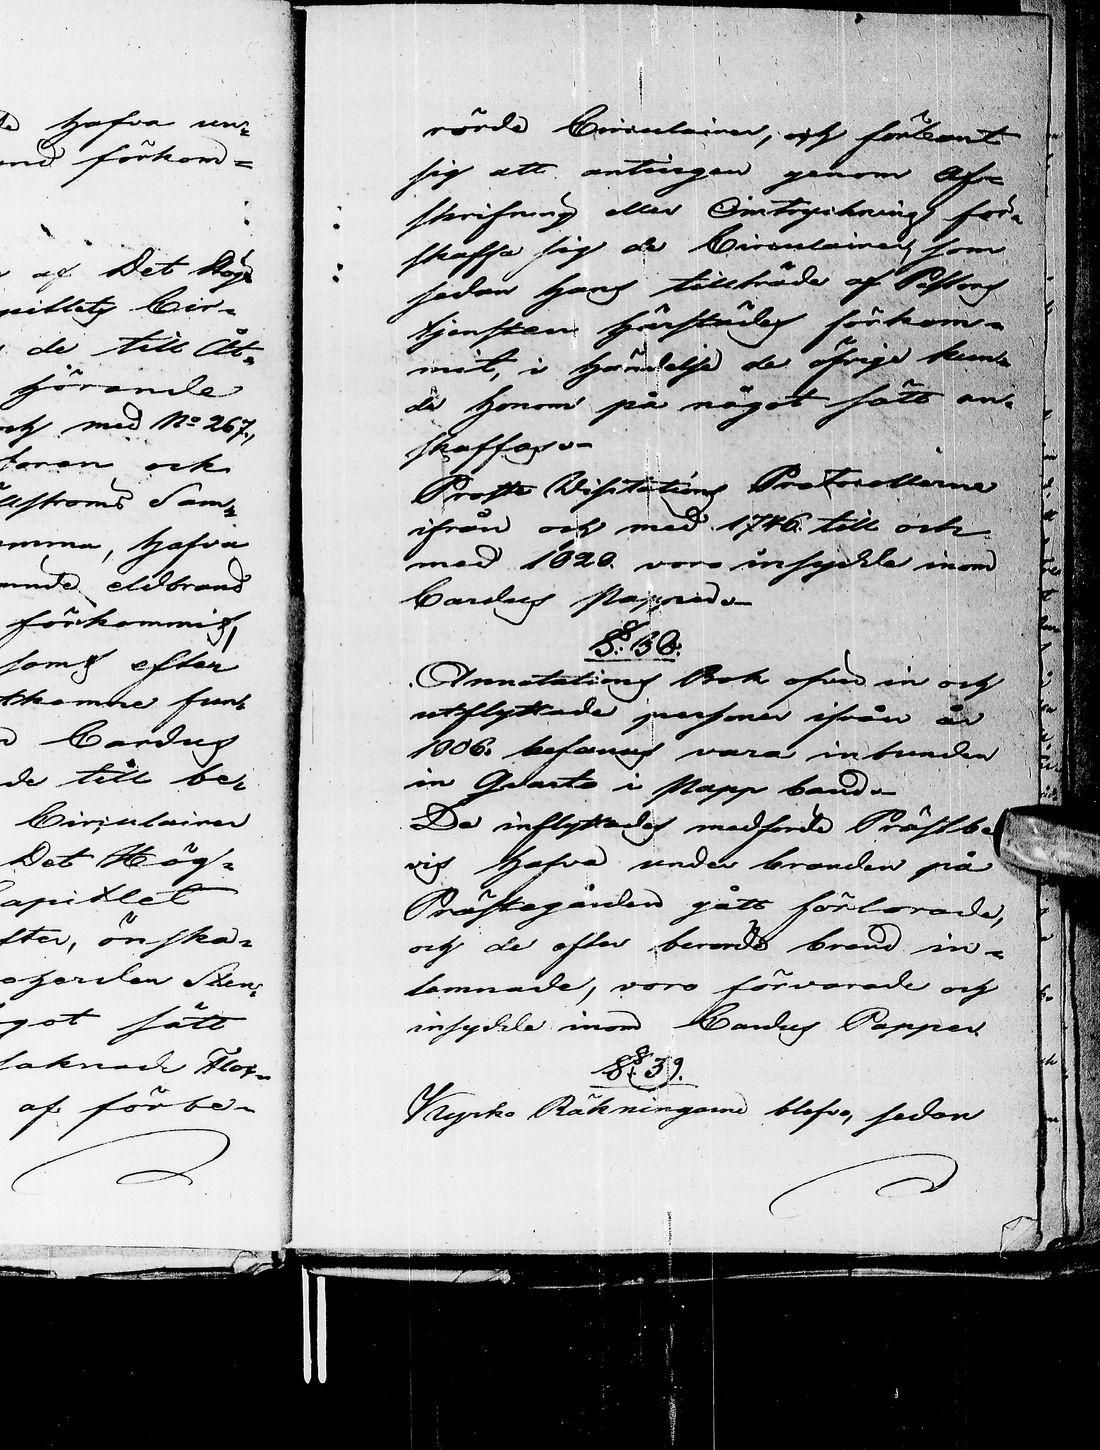 hafva un-
förkom-
af Det Hög-
Cir-
de till Åt-
hörande
och med No 267,
och
Sam-
hafva
eldbrand
förkommit,
som efter
Cardus
de till be-
Circulairer
Det Hög-
Capitlet
önska-
got sätt
saknade
af förbe-
rörde Circulairer, och förbant
sig att antingen genom Af-
skrifning eller Omtryckning för-
skaffa sig de Circulairer, som
sedan hans tillträde af Pastors
tjensten härstädes förkom-
mit, i händelse de öfrige kun-
de honom på något sätt an-
skaffas.-
Prosts Visitations Protocollerne
ifrån och med 1746. till och
med 1820. voro insydde inom
Cardus Papper.-
§. 38.
Annotations Bok öfver in och
utflyttade personer ifrån år
1806. befanns vara inbunden
in Quarto i Papp band.-
De inflyttades medförde Prästbe
vis hafva under branden på
Prästegården gått förlorade,
och de efter berörde brand in-
lemnade, voro förvarade och
insydde inom Cardus Papper.
§. 39.
Kyrko Räkningarne blefvo, sedan